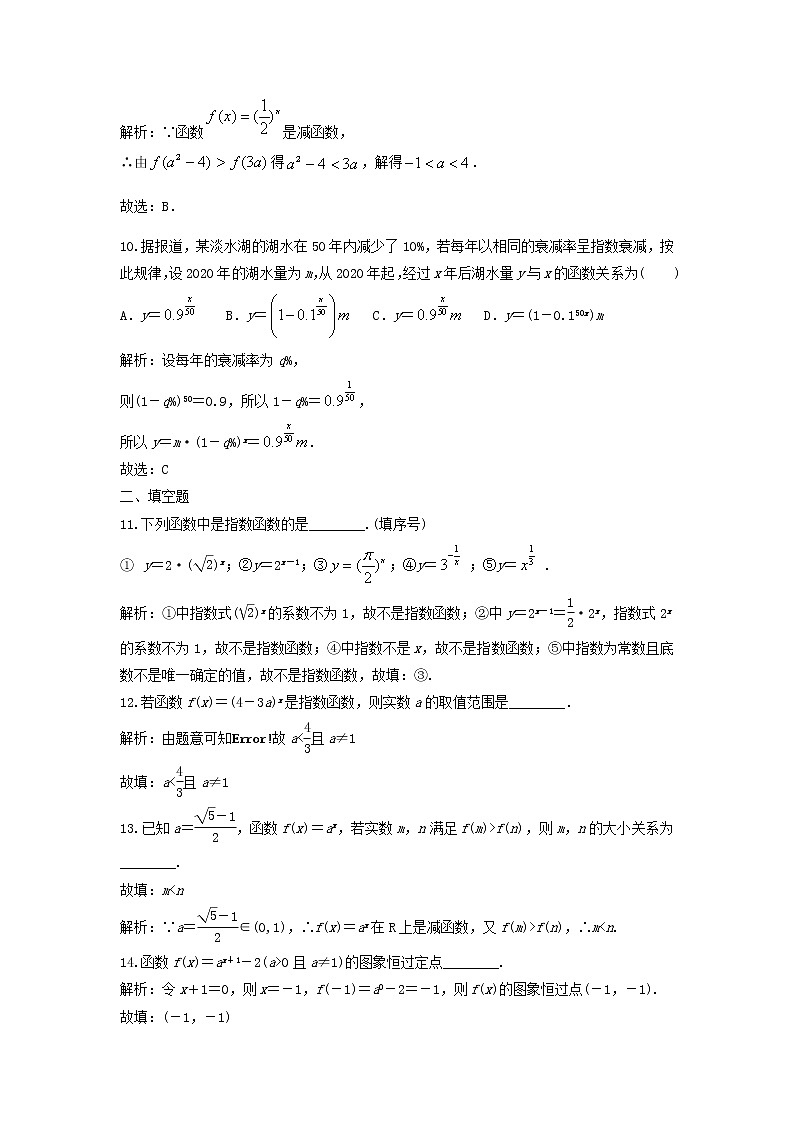 解析：∵函数 f(x)=(1/2)^x 是减函数，
∴由 f(a²-4)>f(3a) 得 a²-4<3a ，解得 -1<a<4 .
故选：B.
10.据报道，某淡水湖的湖水在 50 年内减少了 10%，若每年以相同的衰减率呈指数衰减，按
此规律，设 2020 年的湖水量为 m，从 2020 年起，经过 x 年后湖水量 y 与 x 的函数关系为(　　)
A．y＝0.9^(x/50)　B．y＝(1-0.1^(x/50))m　C．y＝0.9^(x/50)m　D．y＝(1－0.1^(50x))m
解析：设每年的衰减率为 q%，
则(1－q%)^50＝0.9，所以 1－q%＝0.9^(1/50)，
所以 y＝m·(1－q%)^x＝0.9^(x/50)m.
故选：C
二、填空题
11.下列函数中是指数函数的是________.(填序号)
① y＝2·(√2)^x；②y＝2^(x－1)；③y=(π/2)^x；④y＝3^(-1/x)；⑤y＝x^(1/3) .
解析：①中指数式(√2)^x的系数不为 1，故不是指数函数；②中 y＝2^(x－1)＝1/2·2^x，指数式 2^x
的系数不为 1，故不是指数函数；④中指数不是 x，故不是指数函数；⑤中指数为常数且底
数不是唯一确定的值，故不是指数函数，故填：③.
12.若函数 f(x)＝(4－3a)^x是指数函数，则实数 a 的取值范围是________.
解析：由题意可知Error!故 a<4/3且 a≠1
故填：a<4/3且 a≠1
13.已知 a＝(√5－1)/2，函数 f(x)＝a^x，若实数 m，n 满足 f(m)>f(n)，则 m，n 的大小关系为
________.
故填：m<n
解析：∵a＝(√5－1)/2∈(0,1)，∴f(x)＝a^x在 R 上是减函数，又 f(m)>f(n)，∴m<n.
14.函数 f(x)＝a^(x＋1)－2(a>0 且 a≠1)的图象恒过定点________.
解析：令 x＋1＝0，则 x＝－1，f(－1)＝a^0－2＝－1，则 f(x)的图象恒过点(－1，－1).
故填：(－1，－1)